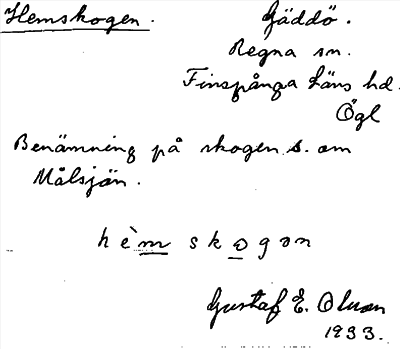 Hemskogen.
Gäddö.
Regna sn.
Finspånga läns hd.
Ögl
Benämning på skogen s. om
Målsjön.
hèm skogon
Gustaf E. Olsson
1933.